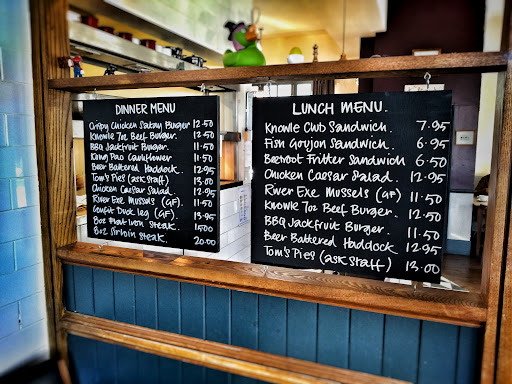 DINNER MENU
Crispy Chicken Satay Burger 12.50
Knowle 7oz Beef Burger. 12.50
BBQ Jackfruit Burger. 11.50
Kung Pao Cauliflower 11.50
Beer Battered Haddock. 12.95
Tom's Pies (ask staff) 13.00
Chicken Caesar Salad. 12.95
River Exe Mussels (GF). 11.50
Confit Duck leg (GF). 13.95
8oz Flat Iron Steak. 15.00
8oz Sirloin Steak. 20.00
LUNCH MENU.
Knowle Club Sandwich. 7.95
Fish Goujon Sandwich. 6.95
Beetroot Fritter Sandwich 6.50
Chicken Caesar Salad. 12.95
River Exe Mussels (GF) 11.50
Knowle 7oz Beef Burger. 12.50
BBQ Jackfruit Burger. 11.50
Beer Battered Haddock 12.95
Tom's Pies (ask staff) 13.00